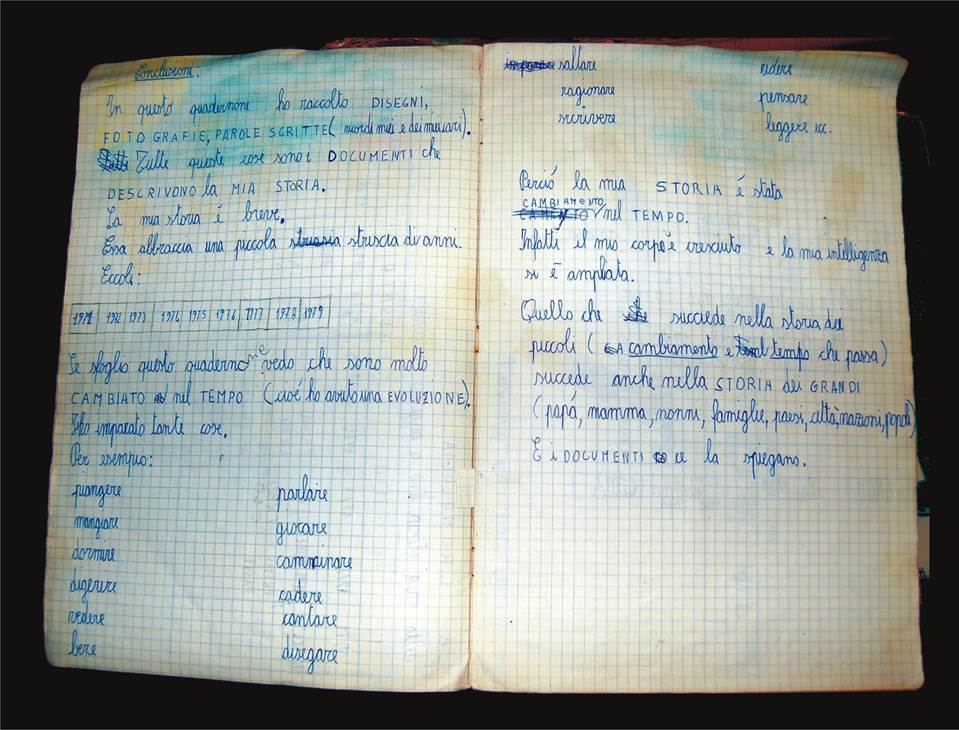 Conclusioni:
In questo quadernone ho raccolto DISEGNI,
FOTOGRAFIE, PAROLE SCRITTE (ricordi miei e dei miei cari).
Tutte queste cose sono i DOCUMENTI che
DESCRIVONO la MIA STORIA.
La mia storia è breve.
Essa abbraccia una piccola striscia di anni.
Eccoli:
1971 1972 1973 1974 1975 1976 1977 1978 1979
Se sfoglio questo quadernone vedo che sono molto
CAMBIATO nel TEMPO (cioè ho avuto una EVOLUZIONE).
Ho imparato tante cose.
Per esempio:
piangere parlare
mangiare giocare
dormire camminare
digerire cadere
vedere cantare
bere disegare
saltare ridere
ragionare pensare
scrivere leggere ecc.
Perció la mia STORIA é stata
CAMBIAMENTO nel TEMPO.
Infatti il mio corpo è cresciuto e la mia intelligenza
si è ampliata.
Quello che succede nella storia dei
piccoli (cambiamento e tempo che passa)
succede anche nella STORIA dei GRANDI
(papá, mamma, nonni, famiglie, paesi, città, nazioni, popoli)
E i DOCUMENTI ce la spiegano.